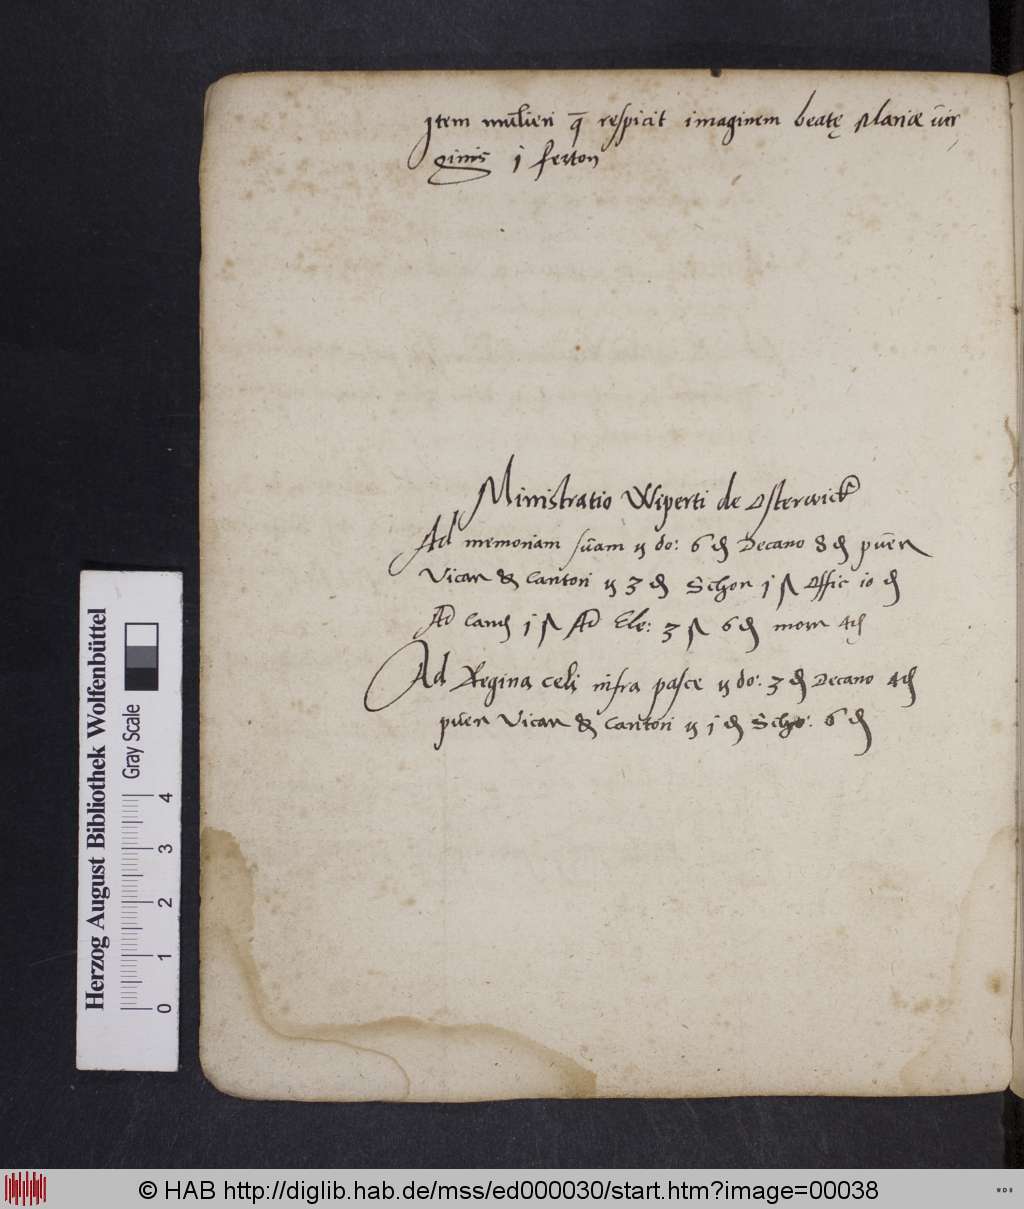 Item mulieri q̄ respicit imaginem beatę Mariæ vir
ginis j ferton
Ministratio Wiperti de Osterwick
Ad memoriam suam ij do: 6 ₰ Decano 8 ₰ puer
Vicar & Cantori ij 3 ₰ Schor j ß Offic io ₰
Ad Cand j ß Ad Ele: 3 ß 6 ₰ morn 4 ₰
Ad Regina celi infra pasce ij do: 3 ₰ Decano 4 ₰
puer Vicar & Cantori ij j ₰ Scho: 6 ₰
Herzog August Bibliothek Wolfenbüttel
Gray Scale
0 1 2 3 4
© HAB http://diglib.hab.de/mss/ed000030/start.htm?image=00038